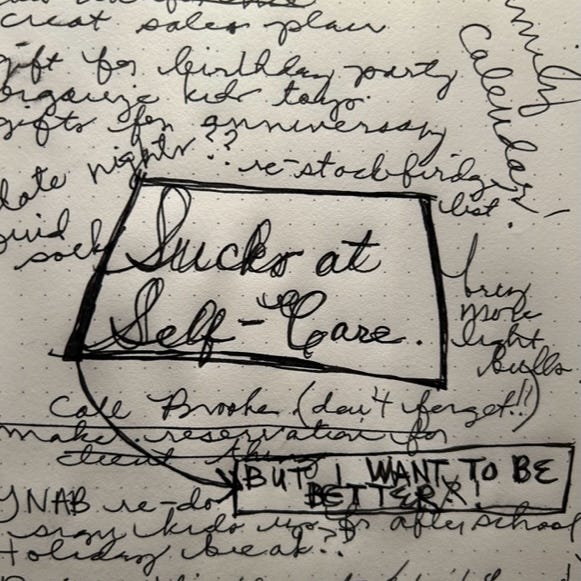 creat sales plan
gift for birthday party
organize kids toys
gifts for anniversary
date nights??
re-stock firdge
list.
family
Calendar
Sucks at
Self-Care.
buy
more
light
bulbs
call Brooke (don't forget!!)
make reservation for
client
BUT I WANT TO BE
BETTER!
YNAB re-do
sign kids up for after school
Holiday break??